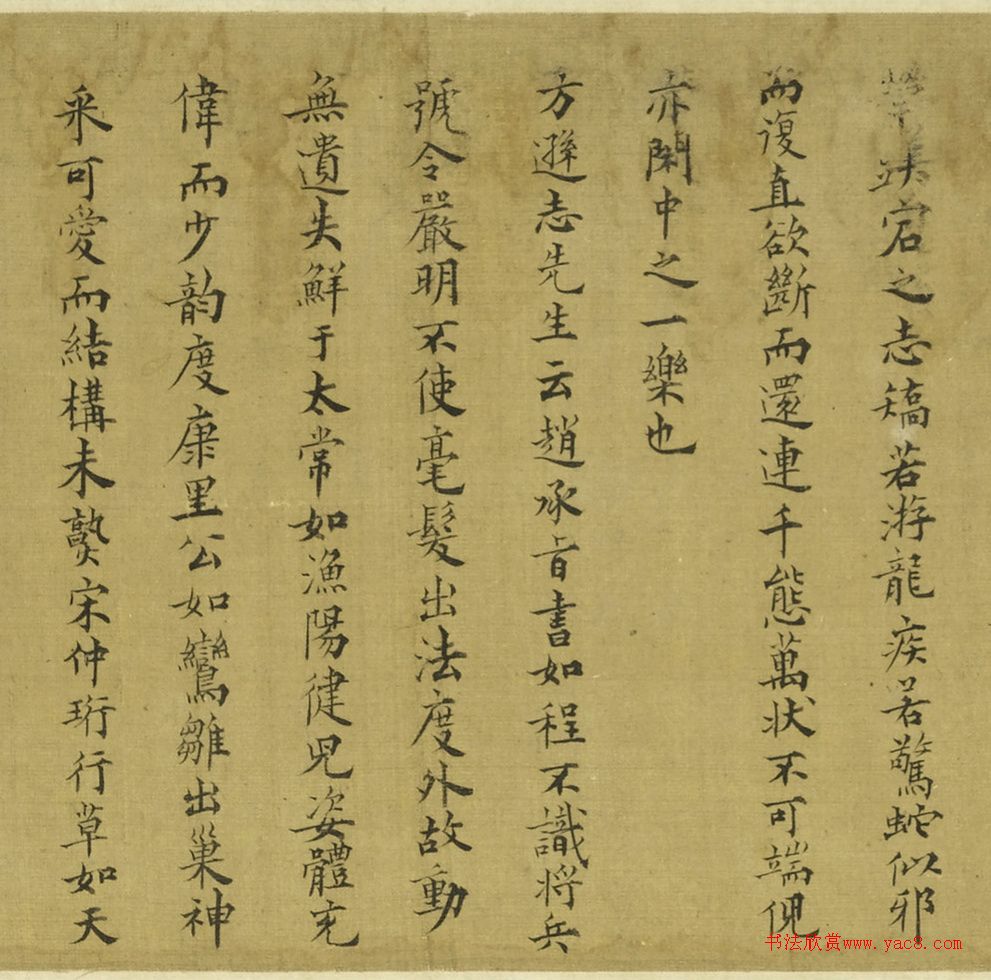 跌宕之志矯若游龍疾若驚蛇似邪
而復直欲斷而還連千態萬状不可端倪
亦閑中之一樂也
方遜志先生云趙承旨書如程不識将兵
號令嚴明不使毫髮出法度外故動
無遺失鮮于太常如漁陽健兒姿體充
偉而少韵度康里公如鸞雛出巢神
采可愛而結構未熟宋仲珩行草如天
书法欣赏www.yac8.com